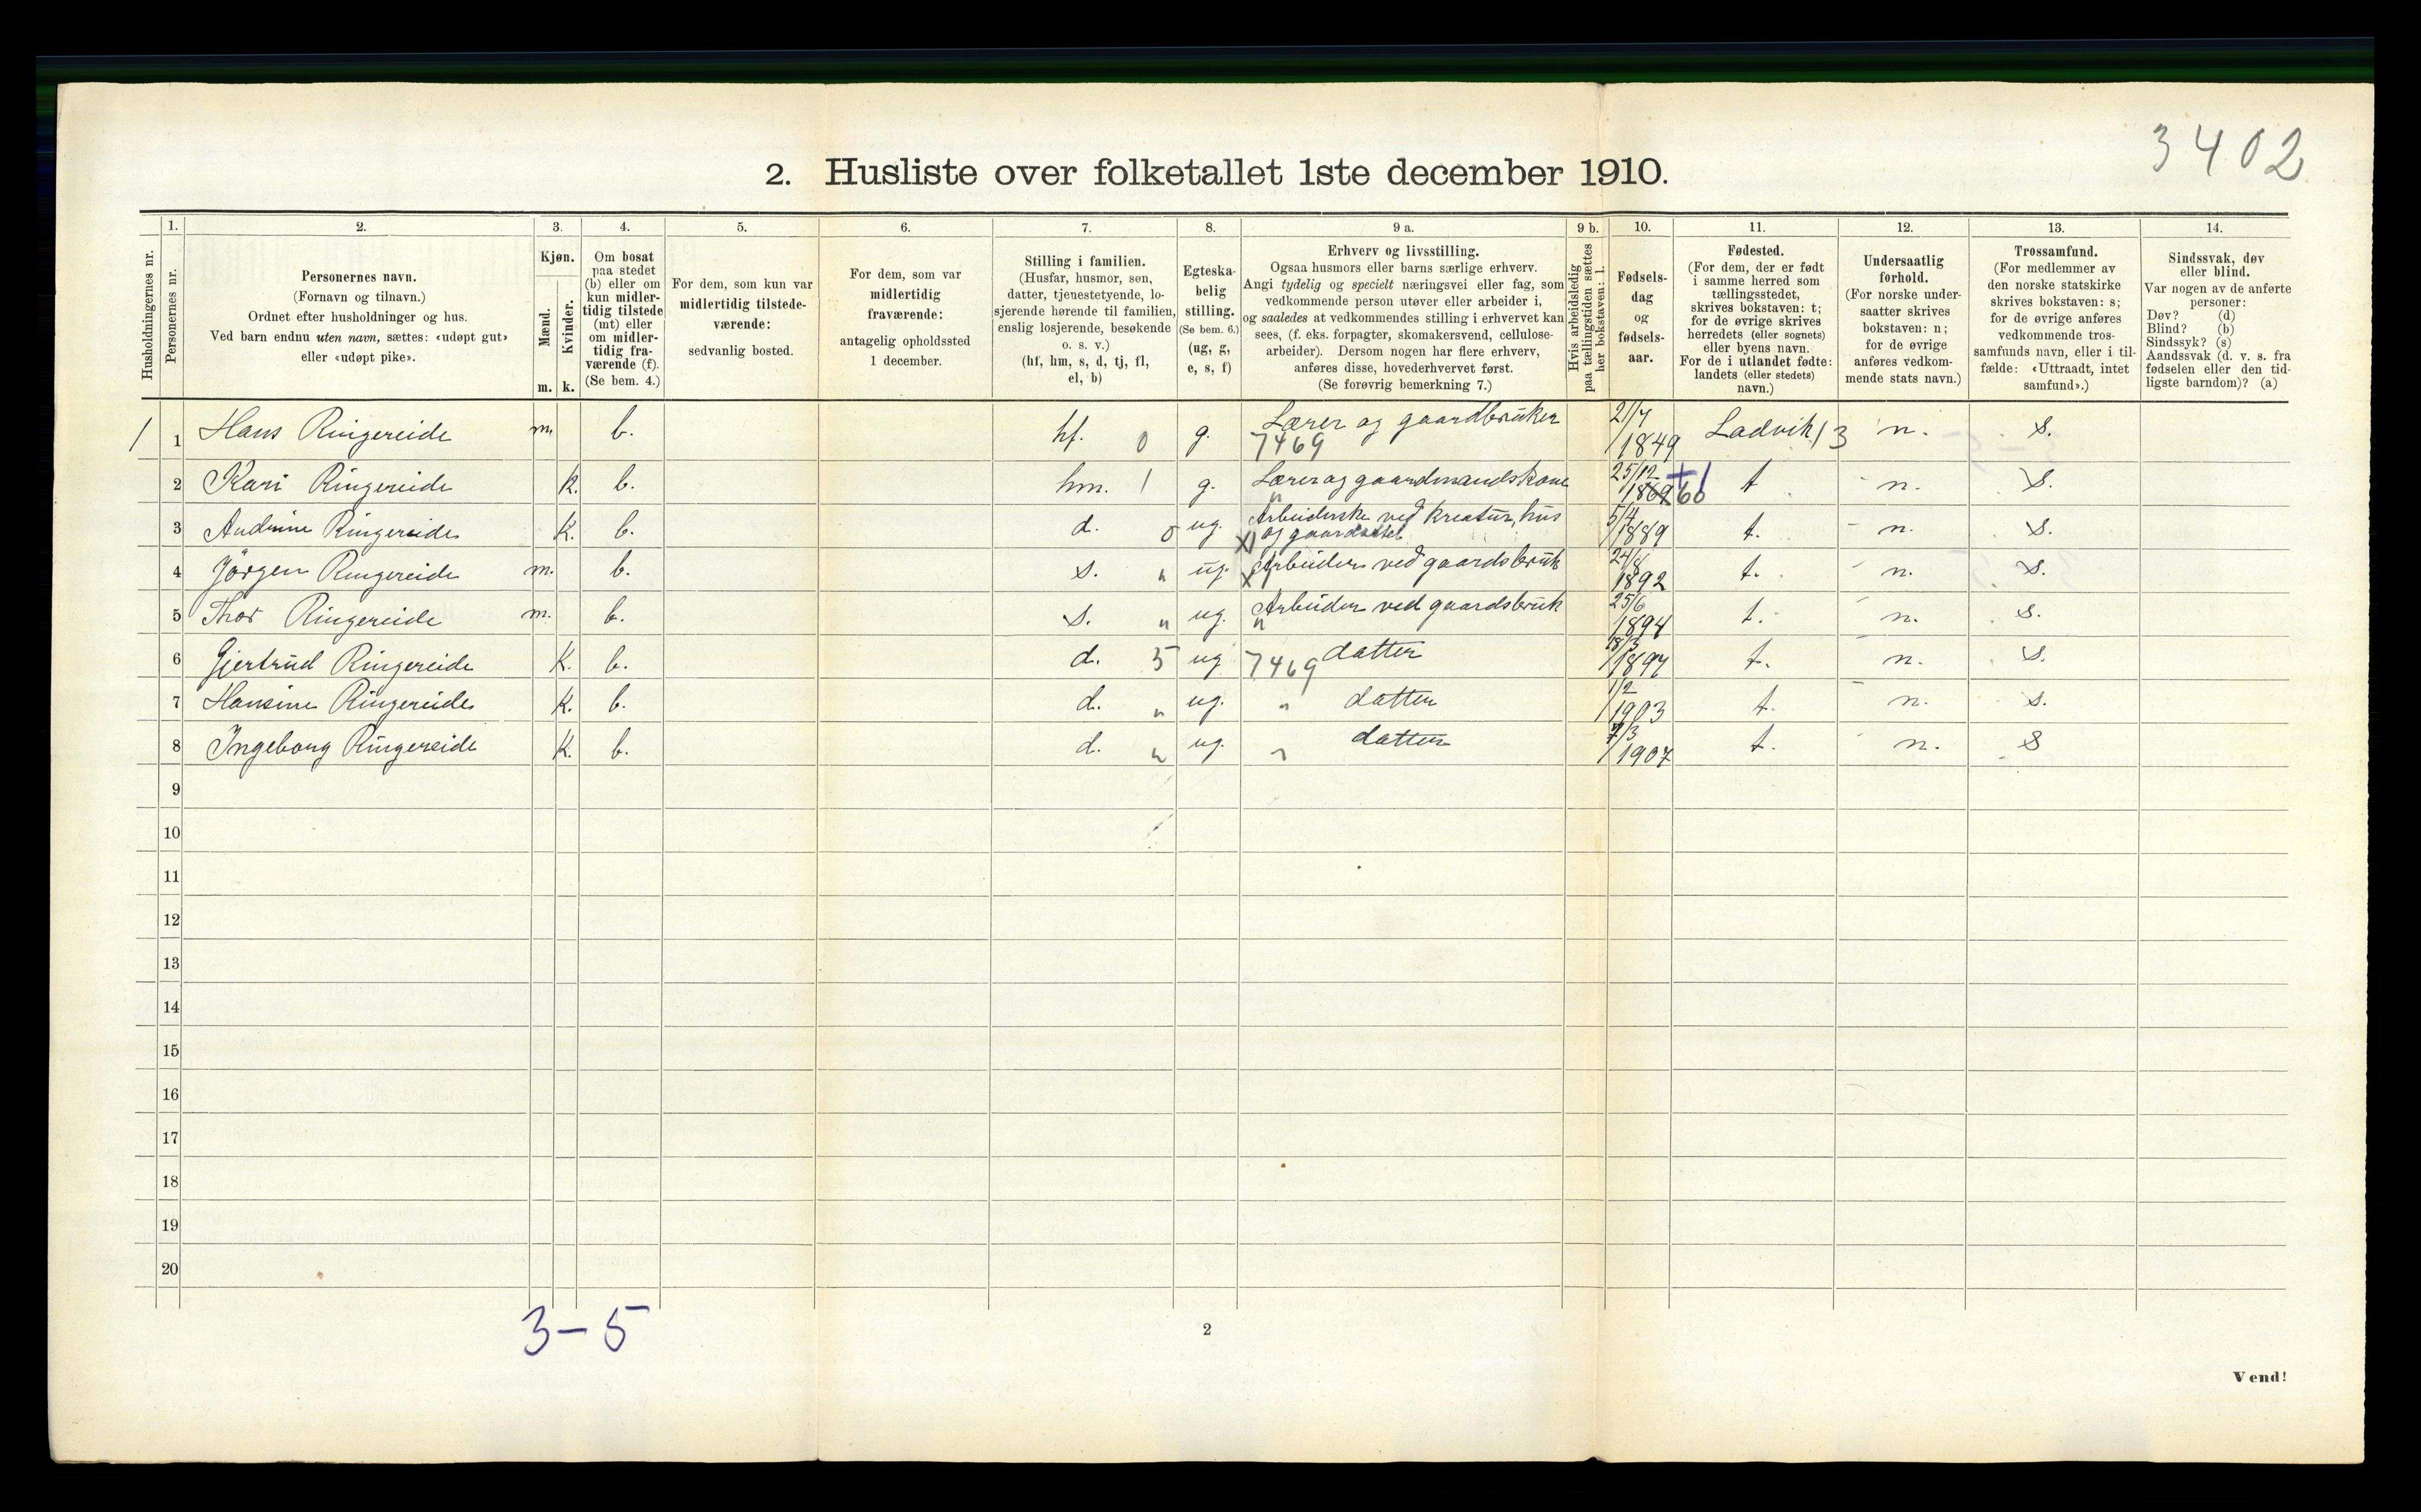 3402
2. Husliste over folketallet 1ste december 1910.
Husholdningernes nr.
1.
Personernes nr.
2.
Personernes navn.
(Fornavn og tilnavn.)
Ordnet efter husholdninger og hus.
Ved barn endnu uten navn, sættes: «udøpt gut»
eller «udøpt pike».
3.
Kjøn.
Mænd.
Kvinder.
m. k.
4.
Om bosat
paa stedet
(b) eller om
kun midler-
tidig tilstede
(mt) eller
om midler-
tidig fra-
værende (f).
(Se bem. 4.)
5.
For dem, som kun var
midlertidig tilstede-
værende:
sedvanlig bosted.
6.
For dem, som var
midlertidig
fraværende:
antagelig opholdssted
1 december.
7.
Stilling i familien.
(Husfar, husmor, søn,
datter, tjenestetyende, lo-
sjerende hørende til familien,
enslig losjerende, besøkende
o. s. v.)
(hf, hm, s, d, tj, fl,
el, b)
8.
Egteska-
belig
stilling.
(Se bem. 6.)
(ug, g,
e, s, f)
9 a.
Erhverv og livsstilling.
Ogsaa husmors eller barns særlige erhverv.
Angi tydelig og specielt næringsvei eller fag, som
vedkommende person utøver eller arbeider i,
og saaledes at vedkommendes stilling i erhvervet kan
sees, (f. eks. forpagter, skomakersvend, cellulose-
arbeider). Dersom nogen har flere erhverv,
anføres disse, hovederhvervet først.
(Se forøvrig bemerkning 7.)
9 b.
Hvis arbeidsledig
paa tællingstiden sættes
her bokstaven: l.
10.
Fødsels-
dag
og
fødsels-
aar.
11.
Fødested.
(For dem, der er født
i samme herred som
tællingsstedet,
skrives bokstaven: t;
for de øvrige skrives
herredets (eller sognets)
eller byens navn.
For de i utlandet fødte:
landets (eller stedets)
navn.)
12.
Undersaatlig
forhold.
(For norske under-
saatter skrives
bokstaven: n;
for de øvrige
anføres vedkom-
mende stats navn.)
13.
Trossamfund.
(For medlemmer av
den norske statskirke
skrives bokstaven: s;
for de øvrige anføres
vedkommende tros-
samfunds navn, eller i til-
fælde: «Uttraadt, intet
samfund».)
14.
Sindssvak, døv
eller blind.
Var nogen av de anførte
personer:
Døv? (d)
Blind? (b)
Sindssyk? (s)
Aandssvak (d. v. s. fra
fødselen eller den tid-
ligste barndom)? (a)
1 1 Hans Ringereide m. b. hf. 0 g. Lærer og gaardbruker 7469 21/7 1849 Ladvik 13 n. s.
2 Kari Ringereide k. b. hm. 1 g. Lærer og gaardmandskone " 25/12 1869 60 t n. s.
3 Andrine Ringereide k. b. d. 0 ug. Arbeiderske ved kreatur, hus 5/4 1889 t. n. s.
4 Jørgen Ringereide m. b. s. " ug. x Arbeider ved gaardsbruk 24/8 1892 t. n. s.
5 Thor Ringereide m. b. s. " ug. " Arbeider ved gaardsbruk 25/6 1894 t. n. s.
6 Gjertrud Ringereide k. b. d. 5 ug 7469 datter 18/3 1897 t. n. s.
7 Hansine Ringereide k. b. d. " ug. " datter 1/2 1903 t. n. s.
8 Ingeborg Ringereide k. b. d. " ug. " datter 7/3 1907 t. n. s
9
10
11
12
13
14
15
16
17
18
19
20
3-5
2
Vend!